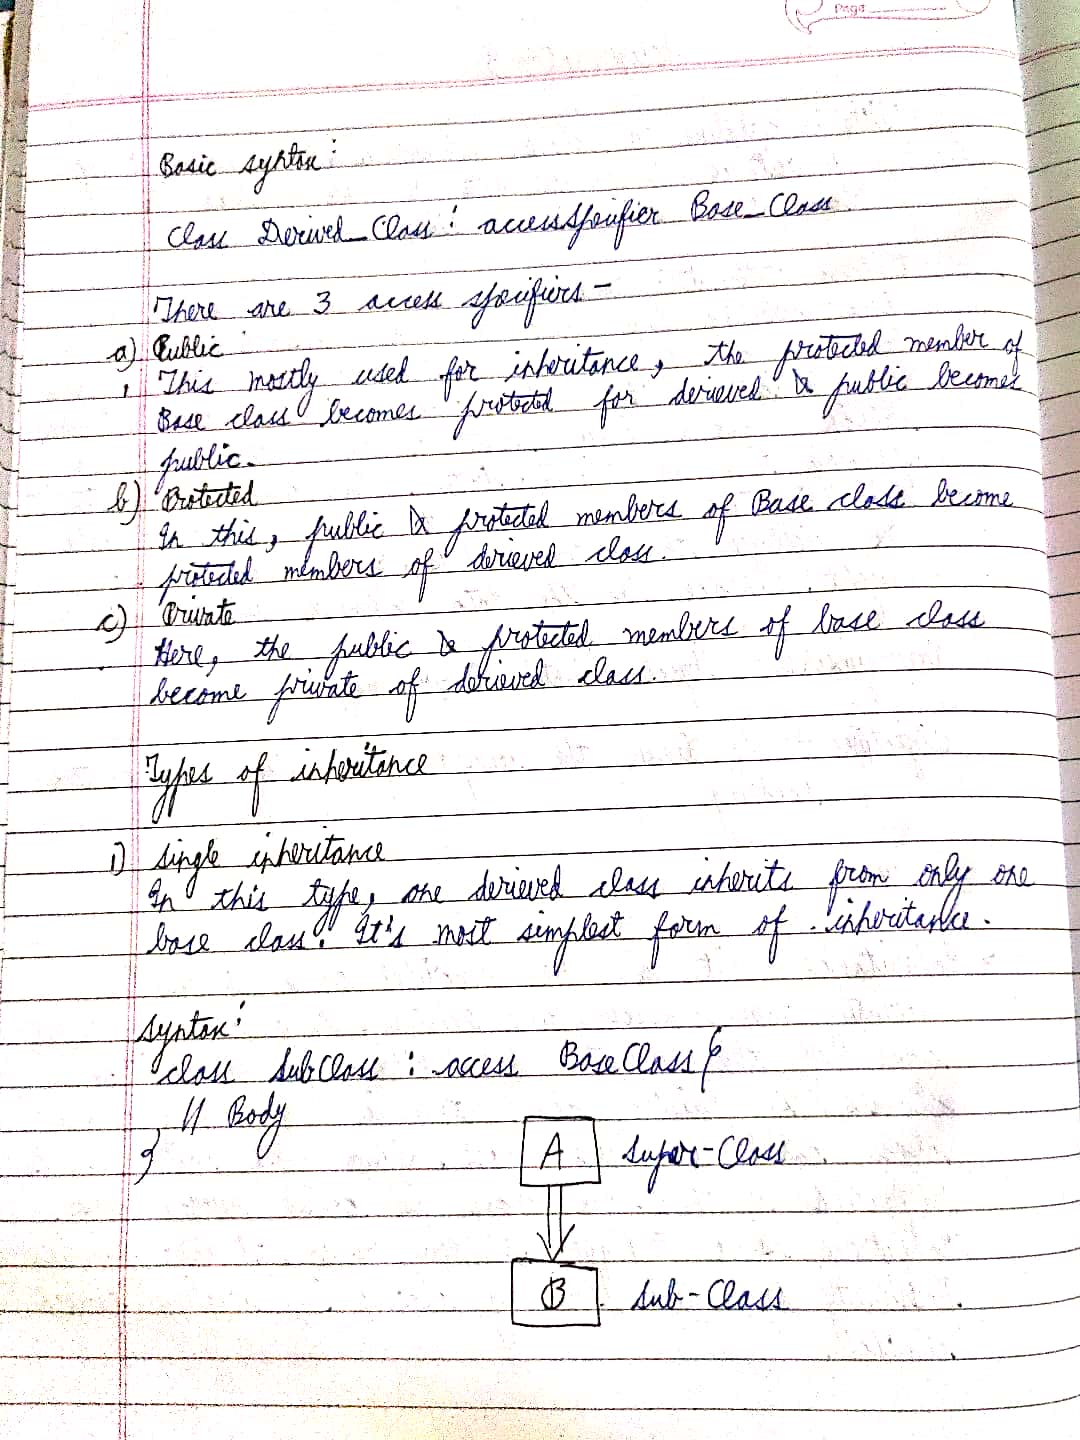 Page
Basic syntax:
Class Derived_Class : accessSpecifier Base_Class
There are 3 access specifiers -
a) Public
This mostly used for inheritance, the protected member of
Base class becomes protected for derieved & public becomes
public.
b) Protected
In this, public & protected members of Base class become
protected members of derieved class.
c) Private
Here, the public & protected members of base class
become private of derieved class.
Types of inheritance
1) Single inheritance
In this type, one derieved class inherits from only one
base class. It's most simplest form of inheritance.
Syntax:
class SubClass : access BaseClass {
// Body
}
A Super-Class
B Sub-Class